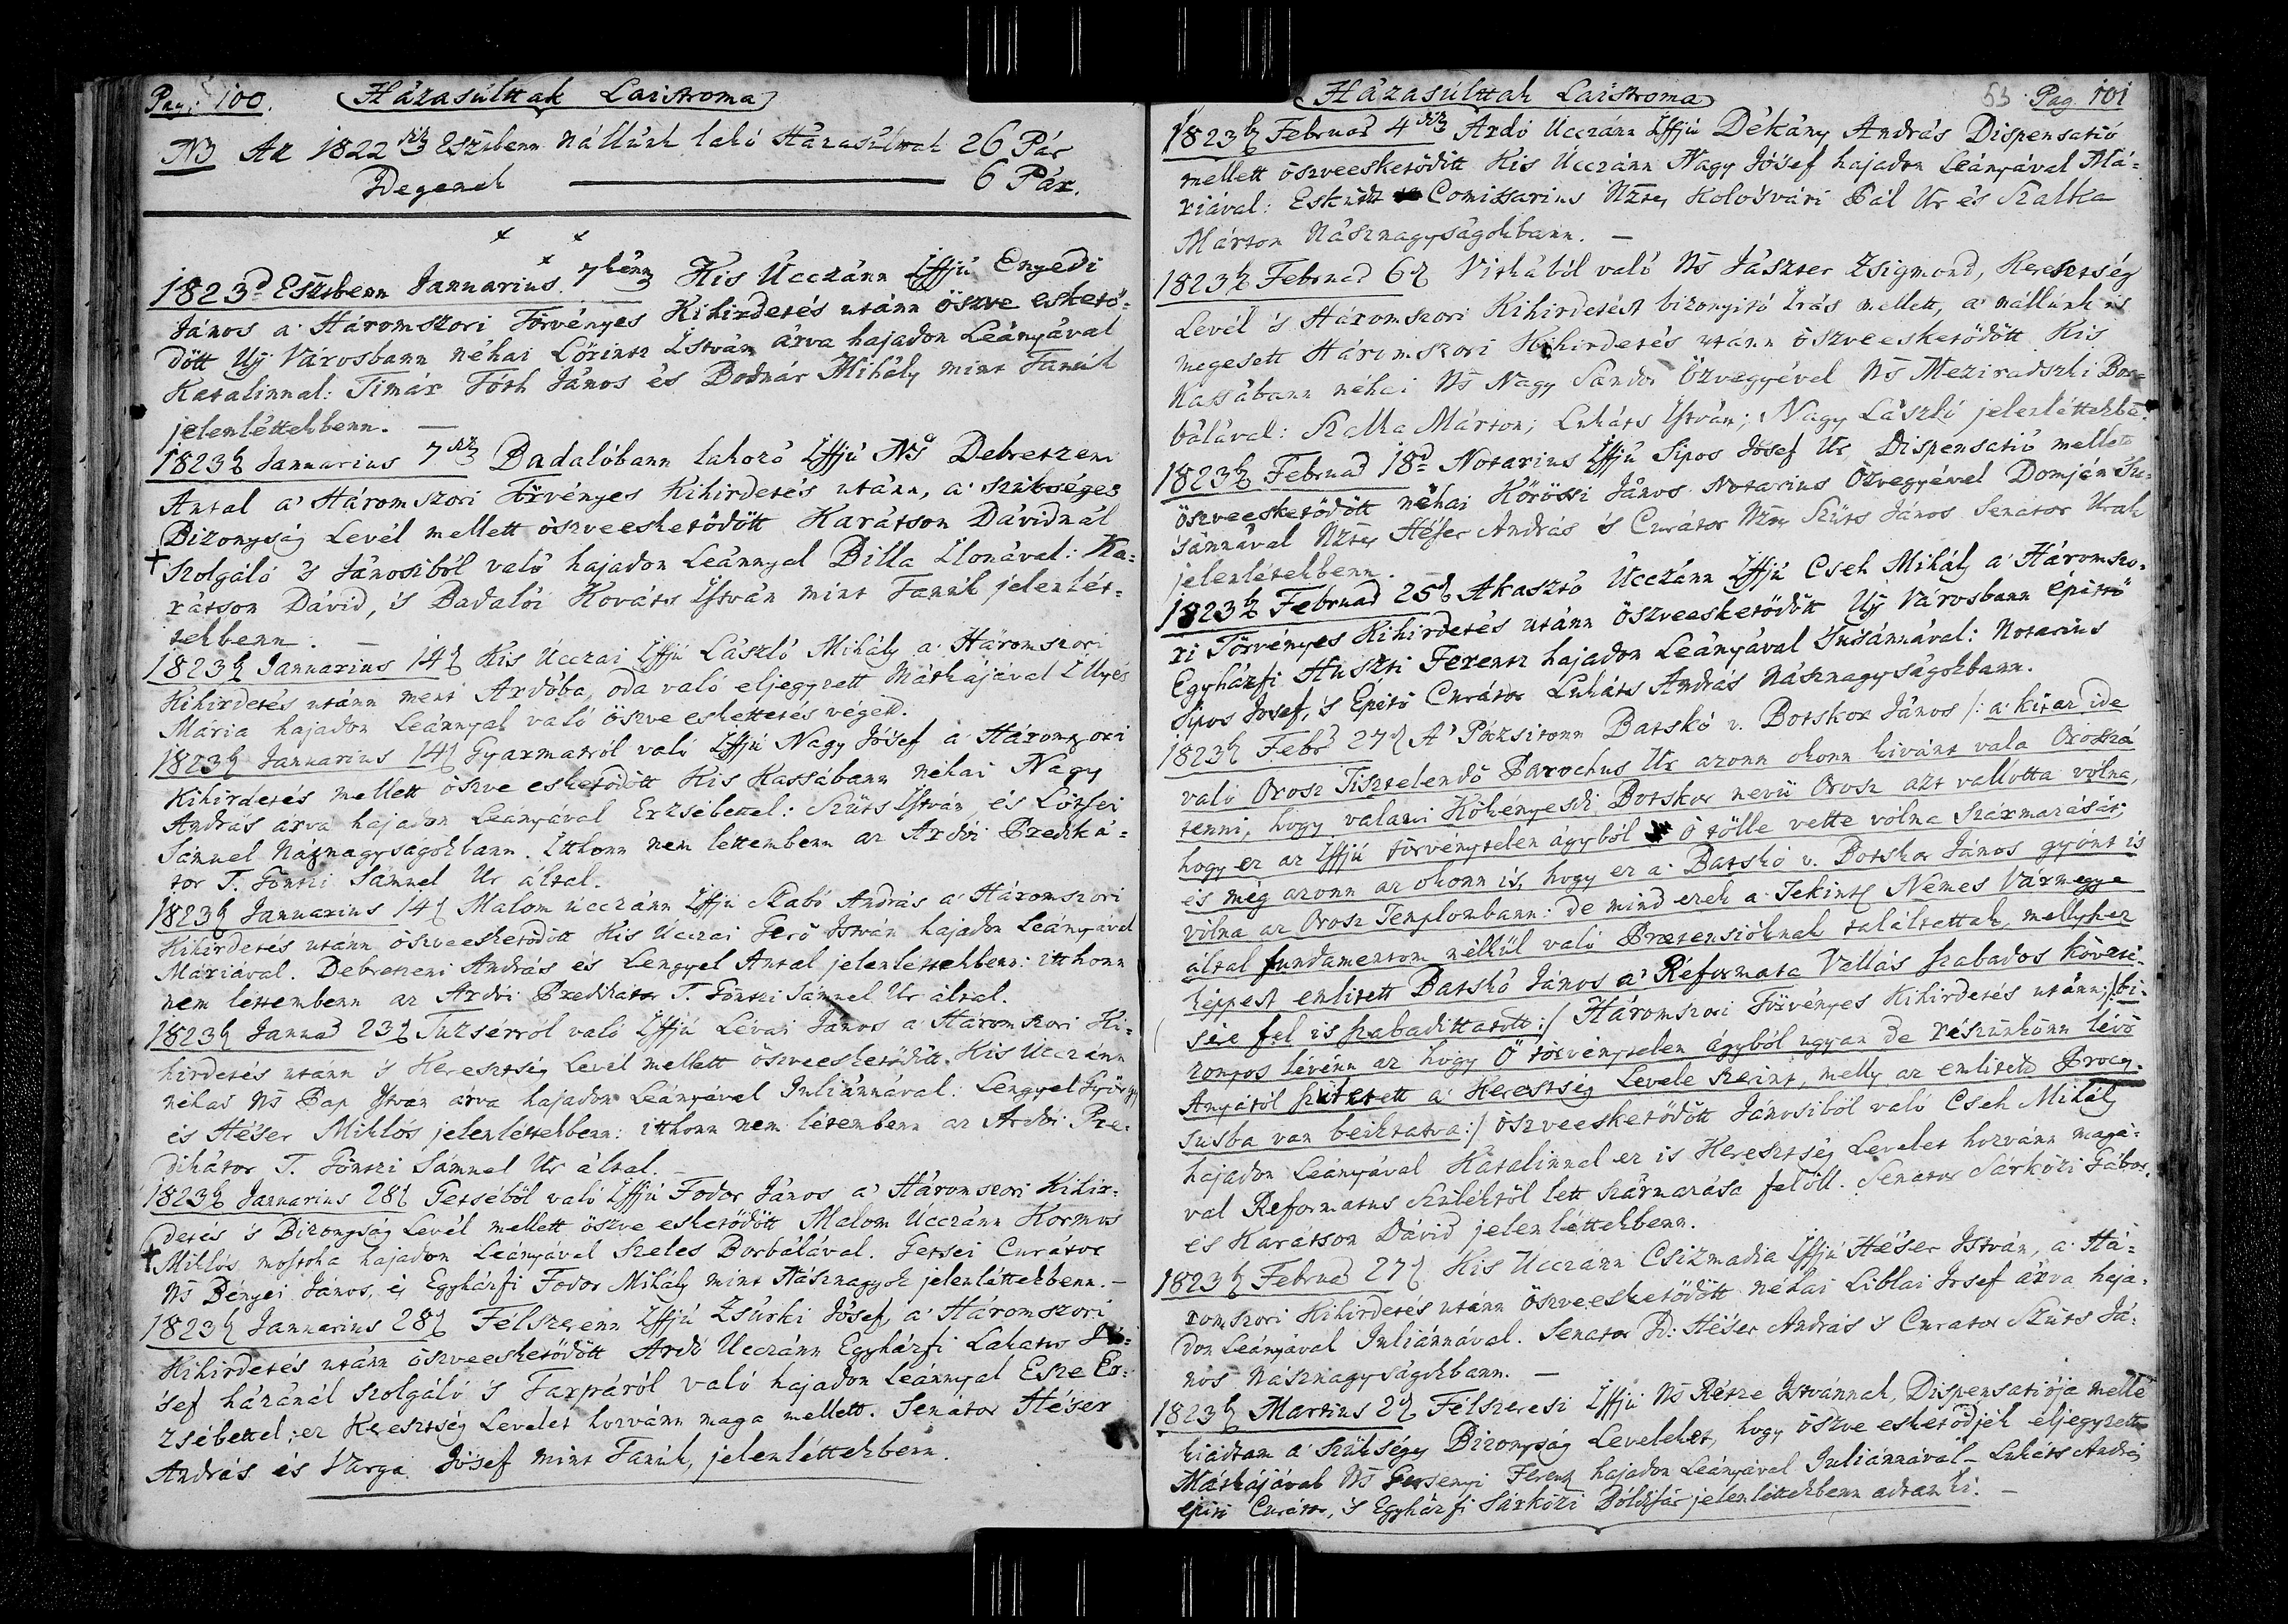 Pag: 100. Házasúlttak Laistroma
NB Az 1822dik Esztbenn Nállúnk lakó Házasúltak 26 Pár
Idegenek 6 Pár.
1823d Esztbenn Januarius 7kénn Kis Úcczánn Iffjú Enyedi
János a' Háromszori Törvényes Kihirdetés utánn öszve eskető-
dött Uj Városbann néhai Lőrintz István árva hajadon Leányával
Katalinnal: Timár Tóth János és Bodnár Mihály mint Tanúk
jelenléttekbenn. —
1823b Januarius 7dik Badalóbann lakozó Iffjú Ns Debretzeni
Antal a' Háromszori Törvényes Kihirdetés utánn, a' szükséges
Bizonyság Levél mellett öszveesketődött Karátson Dávidnál
Szolgáló 's Jánosiból való hajadon Leánnyal Billa Ilonával: Ka-
rátson Dávid, és Badalói Kováts István mint Tanúk jelenlét-
tekbenn. —
1823b Januarius 14b Kis Úcczai Iffjú László Mihály a' Háromszori
Kihirdetés utánn ment Ardóba, oda való eljegyzett Mátkájával Illyés
Mária hajadon Leánnyal való öszve eskettetés végett.
1823b Januarius 14b Gyarmatról való Iffjú Nagy Jósef a' Háromszori
Kihirdetés mellett öszve esketődött Kis Kassábann néhai Nagy
András árva hajadon Leányával Erzsébettel: Szüts István és Lőtsei
Sámuel Násznagyságokbann. Itthonn nem lettembenn az Ardói Prediká-
tor T. Göntzi Sámuel Ur által.
1823b Januarius 14b Malom úcczánn Iffjú Szabó András a' Háromszori
Kihirdetés utánn öszveesketődött Kis Úcczai Gerő István hajadon Leányával
Máriával. Debretzeni András és Lengyel Antal jelenléttekbenn: itthonn
nem léttembenn az Ardói Predikátor T. Göntzi Sámuel Ur által.
1823b Januar 23b Tuzsérról való Iffjú Lévai János a' Háromszori Ki-
hirdetés utánn 's Keresztség Levél mellett öszveesketődött. Kis Úcczánn
néhai Ns Pap Istvan árva hajadon Leányával Juliánnával: Lengyel György
és Héser Miklós jelenléttekbenn: itthonn nem létembenn az Ardói Pre-
dikátor T. Göntzi Sámuel Ur által. —
1823b Januarius 28b Getséből való Iffjú Fodor János a' Háromszori Kihir-
detés 's Bizonyság Levél mellett öszve esketődött Malom Úcczánn Kormos
Miklós mostoha hajadon Leányával Szeles Borbálával. Getsei Curátor
Ns Bényei János, és Egyházfi Fodor Mihály mint Násznagyok jelenléttekbenn. —
1823b Januarius 28b Félszerenn Iffjú Zsúrki Jósef, a' Háromszori
Kihirdetés utánn öszveesketődött Ardó Úcczánn Egyházfi Lakatos Jó-
sef házánál szolgáló 's Tarpáról való hajadon Leánnyal Esze Er-
zsébettel; ez Keresztség Levelet hozvánn maga mellett. Senátor Héser
András és Varga Jósef mint Tanúk, jelenléttekbenn.
Házasúlttak Laistroma 53 Pag. 101
1823b Februar 4dik Ardó Úcczánn Iffjú Dékány András Dispensatió
mellett öszveesketődött Kis Úcczánn Nagy Jósef hajadon Leányával Má-
riával: Esküdt Comissarius Nztes Kolosvári Pál Ur és Szalka
Márton Násznagyságokbann. —
1823b Februar 6b Vitkából való Ns Jászter Zsigmond, Keresztség
Levél 's Háromszori Kihirdetést bizonyitó Irás mellett, a' nállúnk is
megesett Háromszori Kihirdetés utánn öszveesketődött Kis
Kassábann néhai Ns Nagy Sándor Özvegyével Ns Meziradszki Bor-
bálával: Szalka Márton; Lukáts István; Nagy László jelenléttekbe.
1823b Februar 18d Notarius Iffjú Sipos Jósef Ur, Dispensatió mellett
öszveesketődött néhai Kőrössi János Notarius Özvegyével Domján Su-
sánnával Nztes Héser András 's Curátor Nztes Szüts János Senator Urak
jelenlétekbenn. —
1823b Februar 25b Akasztó Úcczánn Iffjú Cseh Mihály a' Háromszo-
ri Törvényes Kihirdetés utánn öszveesketődött Uj Városbann épittő
Egyházfi Huszti Ferentz hajadon Leányával Susánnával: Notarius
Sipos Josef, 's Epitő Curátor Lukáts András Násznagyságokbann.
1823b Febr 27b A' Pázsitonn Batskó v. Botskor János /: a' kit az ide
való Orosz Tisztelendő Parochus Ur azonn okonn kivánt vala Orosszá
tenni, hogy valami Kökényesdi Botskor nevű Orosz azt vallotta vólna,
hogy ez az Iffjú törvénytelen ágyból ő tőlle vette vólna Származását;
és még azonn az okonn is, hogy ez a' Batskó v. Botskor János gyónt is
vólna az Orosz Templombann: de mind ezek a' Tekint. Nemes Vármegye
által fundamentom nélkűl való Prætensióknak találtattak, mellyhez
képpest emlitett Batskó János a' Reformata Vallás szabados követé-
sére fel is szabadittatott :/ Háromszori Törvényes Kihirdetés utánn; /: bi-
zonyos lévénn az hogy Ő törvénytelen ágyból ugyan de részünkönn lévő
Anyától születtett a' Keresztség Levele szerint, melly az emlitett Proces-
susba van beiktatva :/ öszveesketődött Jánosiból való Cseh Mihály
hajadon Leányával Katalinnal ez is Keresztség Levelet hozvánn magá-
val Reformatus Szüléktől lett származása felőll. Senator Sárközi Gábor,
és Karátson Dávid jelenléttekbenn.
1823b Februar 27b Kis Úcczánn Csizmadia Iffjú Héser István, a' Há-
romszori Kihirdetés utánn öszveesketődött néhai Liblai Josef árva haja-
don Leányával Juliánnával. Senator D: Héser András 's Curator Szüts Já-
nos Násznagyságokbann. —
1823b Martius 2b Félszeresi Iffjú Ns Rétze Istvánnak, Dispensatiója mellé
kiadtam a' szükséges Bizonyság Leveleket, hogy öszve esketődjék eljegyzett
Mátkájával Ns Gersenyi Ferentz hajadon Leányával Juliánnával — Lukáts András
épitő Curátor, 's Egyházfi Sárközi Bóldisár jelenléttekbenn adtam ki. —